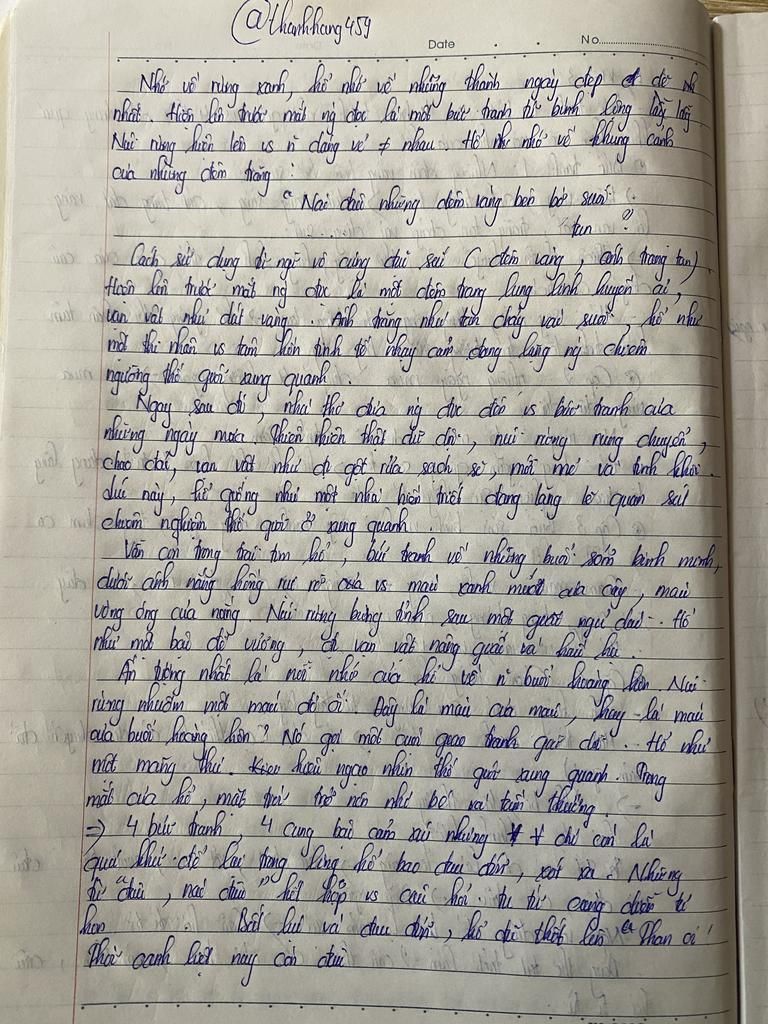 @thanhhang459
Date No
Nhớ về rừng xanh, hổ nhớ về những tháng ngày đẹp đẽ
nhất. Hiện lên trước mắt ng đọc là một bức tranh tứ bình lộng lẫy
Núi rừng hiện lên vs n dáng vẻ ≠ nhau. Hổ nhớ về khung cảnh
của những đêm trăng:
" Nào đâu những đêm vàng bên bờ suối
tan ?"
Cách sử dụng từ ngữ vô cùng đặc sắc ( đêm vàng, ánh trăng tan)
Hiện lên trước mắt ng đọc là một đêm trăng lung linh huyền ảo,
vạn vật như dát vàng. Ánh trăng như tan chảy vào suối, hổ như
một thi nhân vs tâm hồn tinh tế nhạy cảm đang lặng ng chiêm
ngưỡng thế giới xung quanh.
Ngay sau đó, nhà thơ đưa ng đọc đến vs bức tranh của
những ngày mưa. Thiên nhiên thật dữ dội, núi rừng rung chuyển,
chao đảo, vạn vật như đc gột rửa sạch sẽ mới mẻ và tinh khôi.
Lúc này, hổ giống như một nhà hiền triết đang lặng lẽ quan sát
chiêm nghiệm thế giới ở xung quanh.
Vẫn còn trong trái tim hổ, bức tranh về những buổi sớm bình minh,
dưới ánh nắng hồng rực rỡ của vs màu xanh mướt của cây, màu
vàng óng của nắng. Núi rừng bừng tỉnh sau một giấc ngủ dài. Hổ
như một bậc đế vương, đc vạn vật nâng giấc và hầu hạ.
Ấn tượng nhất là nỗi nhớ của hổ về n buổi hoàng hôn. Núi
rừng nhuốm một màu đỏ ối. Đây là màu của máu, hay là màu
của buổi hoàng hôn? Nó gợi một cuộc giao tranh dữ dội. Hổ như
một mãng thú kiêu ngạo nhìn thế giới xung quanh. Trong
mắt của hổ, mặt trời trở nên nhỏ bé và tầm thường.
=> 4 bức tranh, 4 cung bậc cảm xúc nhưng chỉ còn là
quá khứ để lại trong lòng hổ bao đau đớn, xót xa. Những
từ "đâu, nào đâu" kết hợp vs câu hỏi tu từ càng
hơn. Bất lực và đau đớn, hổ đã thốt lên " Than ôi!
Thời oanh liệt nay còn đâu